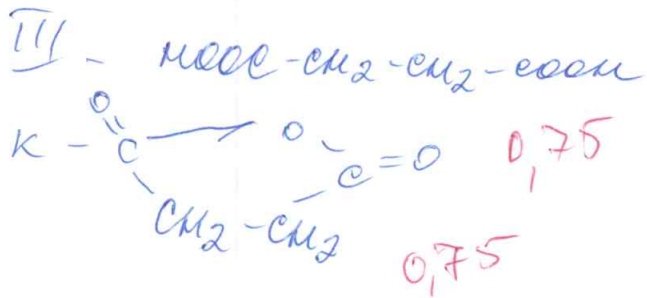 III - HOOC-CH2-CH2-COOH
O
K - C O
C=O 0,75
CH2-CH2
0,75